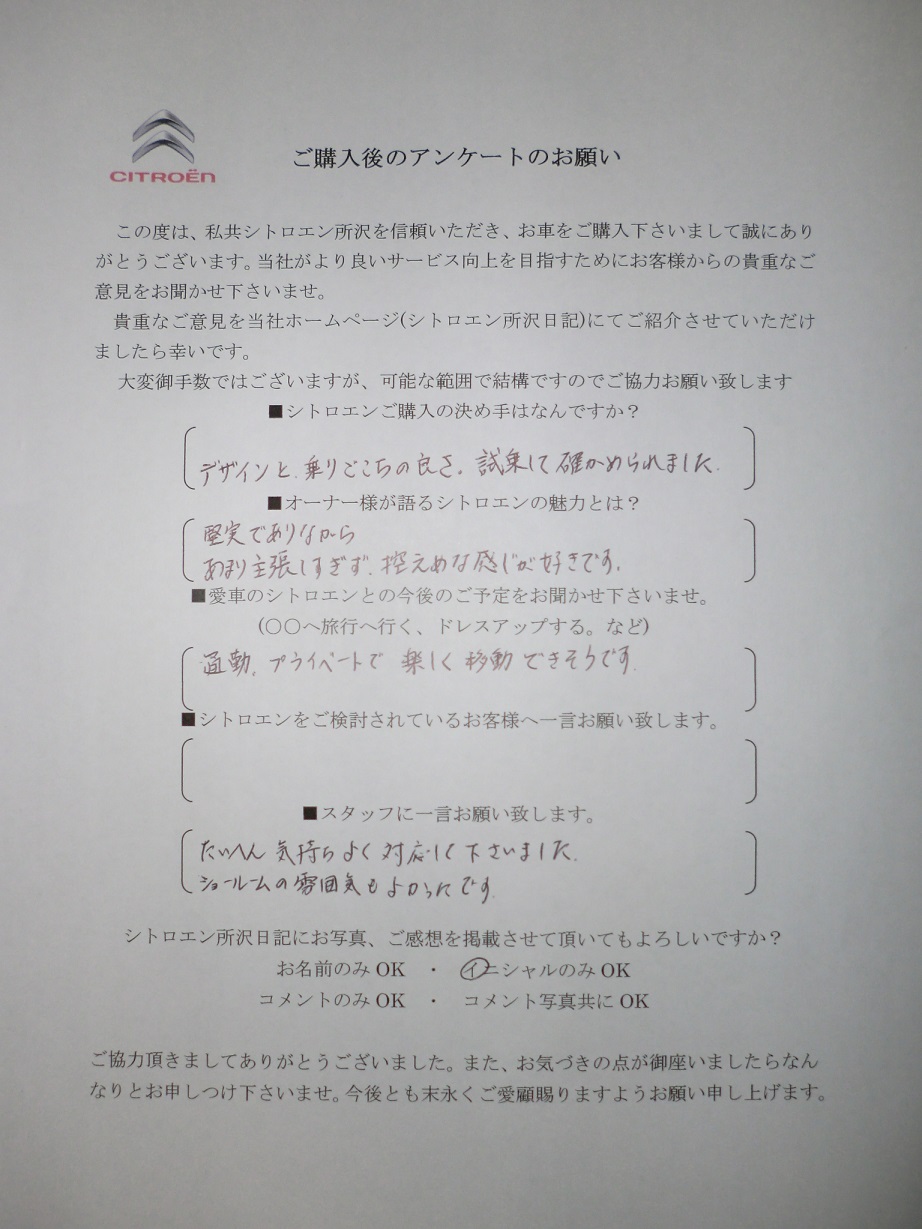 CITROËN
ご購入後のアンケートのお願い
この度は、私共シトロエン所沢を信頼いただき、お車をご購入下さいまして誠にあり
がとうございます。当社がより良いサービス向上を目指すためにお客様からの貴重なご
意見をお聞かせ下さいませ。
貴重なご意見を当社ホームページ(シトロエン所沢日記)にてご紹介させていただけ
ましたら幸いです。
大変御手数ではございますが、可能な範囲で結構ですのでご協力お願い致します
■シトロエンご購入の決め手はなんですか？
デザインと、乗りごこちの良さ。試乗して確かめられました。
■オーナー様が語るシトロエンの魅力とは？
堅実でありながら
あまり主張しすぎず、控えめな感じが好きです。
■愛車のシトロエンとの今後のご予定をお聞かせ下さいませ。
(○○へ旅行へ行く、ドレスアップする。など)
通勤、プライベートで楽しく移動できそうです。
■シトロエンをご検討されているお客様へ一言お願い致します。
■スタッフに一言お願い致します。
たいへん気持ちよく対応して下さいました。
ショールームの雰囲気もよかったです。
シトロエン所沢日記にお写真、ご感想を掲載させて頂いてもよろしいですか？
お名前のみ OK ・ イニシャルのみ OK
コメントのみ OK ・ コメント写真共に OK
ご協力頂きましてありがとうございました。また、お気づきの点が御座いましたらなん
なりとお申しつけ下さいませ。今後とも末永くご愛顧賜りますようお願い申し上げます。